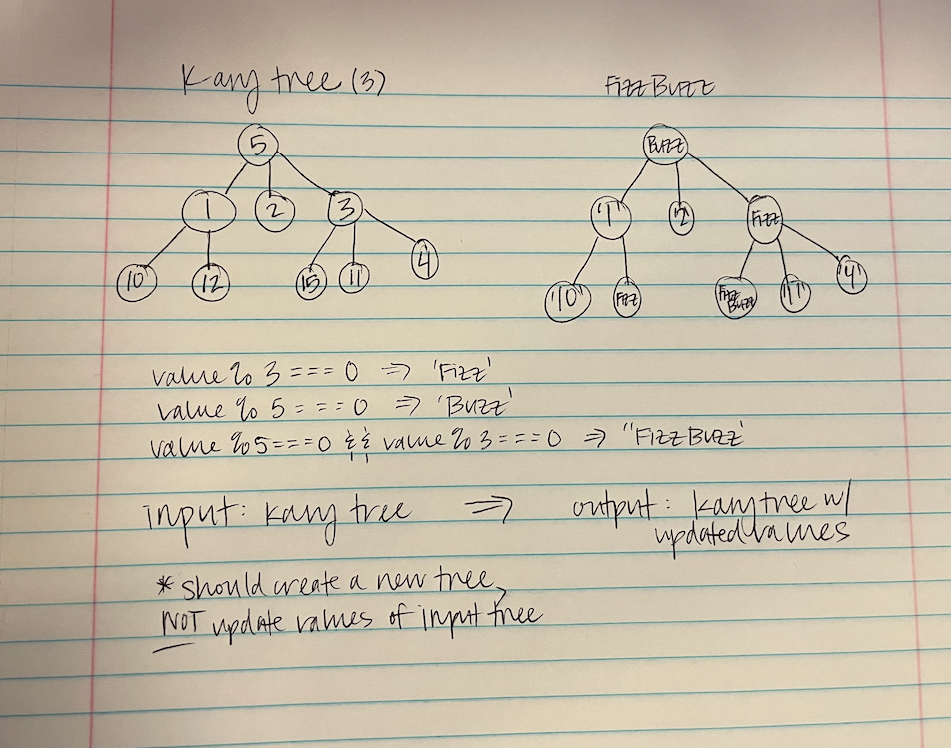 Kary tree (3)
FizzBuzz
5
1 2 3
10 12 15 11 4
Buzz
'1' '2' Fizz
'10' Fizz Fizz Buzz '11' '4'
value % 3 === 0 => 'Fizz'
value % 5 === 0 => 'Buzz'
value % 5 === 0 && value % 3 === 0 => "FizzBuzz'
input: kary tree => output: kary tree w/
updated values
* should create a new tree,
NOT update values of input tree